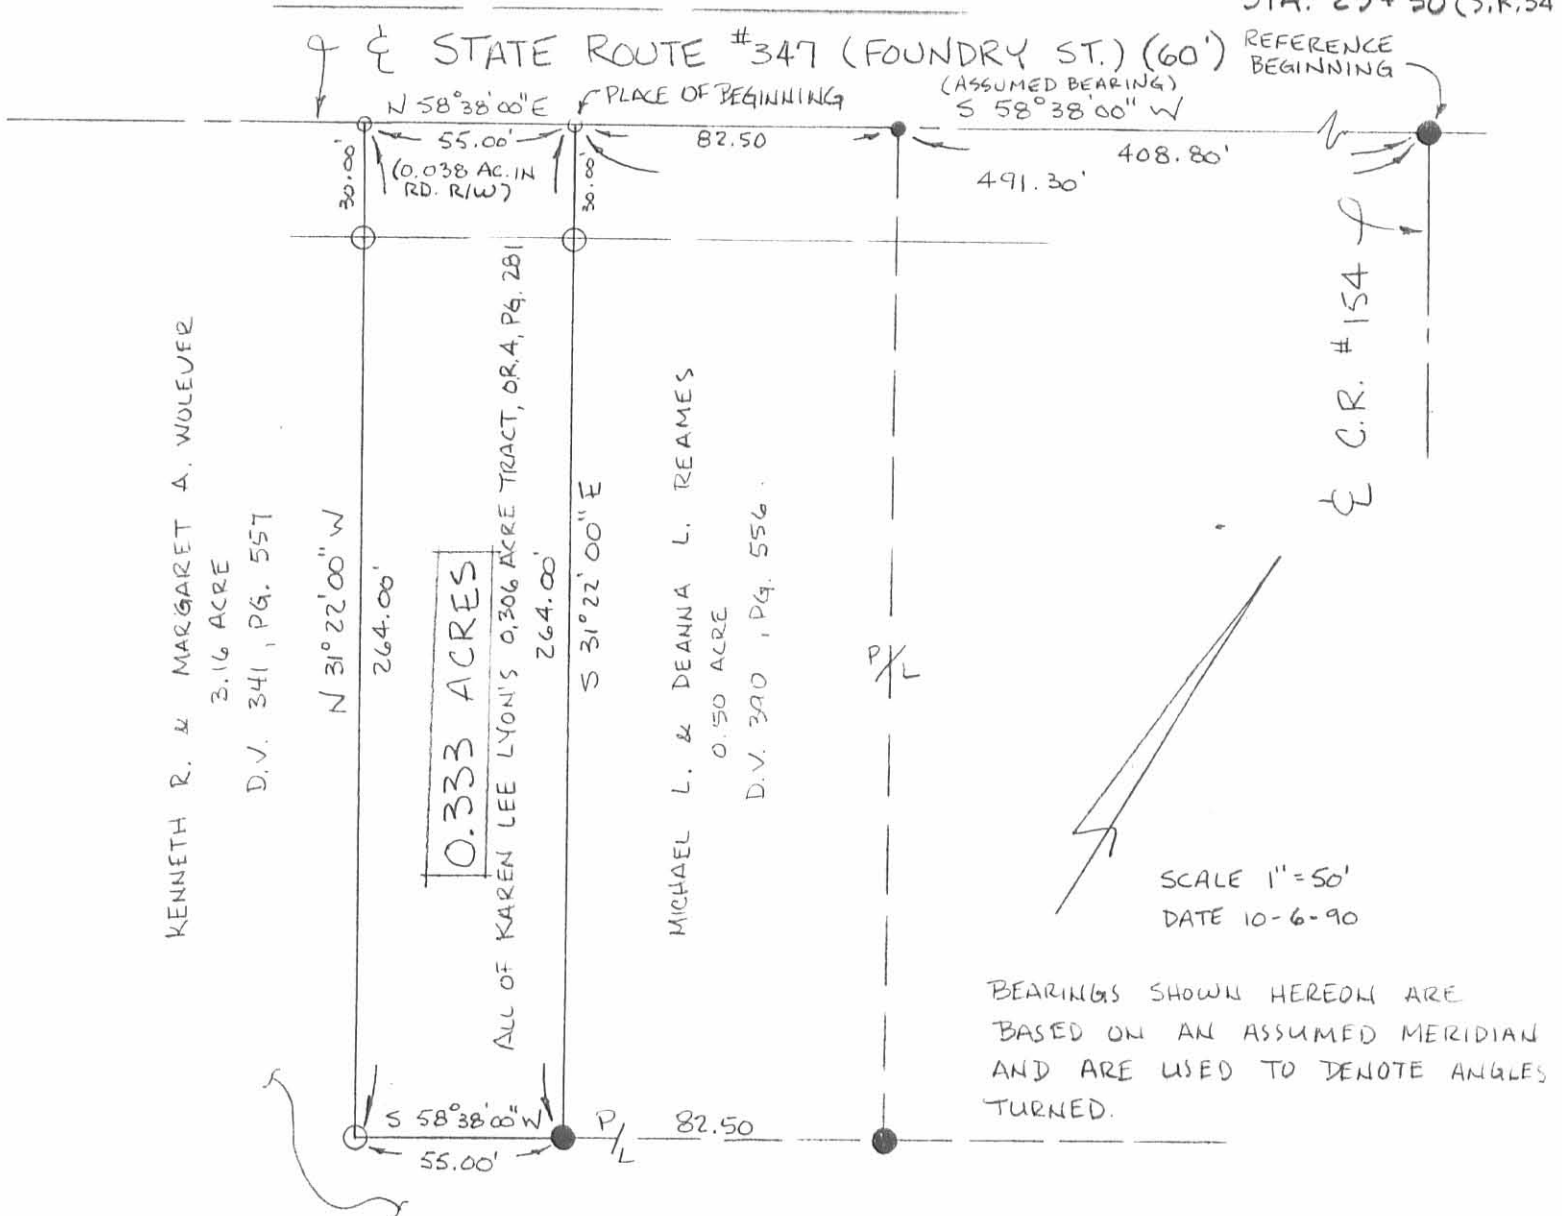 STA. 25+50 (S.R. 34
℄ STATE ROUTE #347 (FOUNDRY ST.) (60')
REFERENCE
BEGINNING
N 58°38'00"E
PLACE OF BEGINNING
(ASSUMED BEARING)
S 58°38'00" W
55.00'
82.50
408.80'
491.30'
(0.038 AC. IN
RD. R/W)
30.00'
30.00'
℄ C.R. #154
KENNETH R. & MARGARET A. WOLEVER
3.16 ACRE
D.V. 341, PG. 557
N 31°22'00" W
264.00'
0.333 ACRES
ALL OF KAREN LEE LYON'S 0.306 ACRE TRACT, O.R.4, PG. 281
264.00'
S 31°22'00" E
MICHAEL L. & DEANNA L. REAMES
0.50 ACRE
D.V. 390, PG. 556.
P/L
SCALE 1"=50'
DATE 10-6-90
BEARINGS SHOWN HEREON ARE
BASED ON AN ASSUMED MERIDIAN
AND ARE USED TO DENOTE ANGLES
TURNED.
S 58°38'00" W
55.00'
P/L
82.50